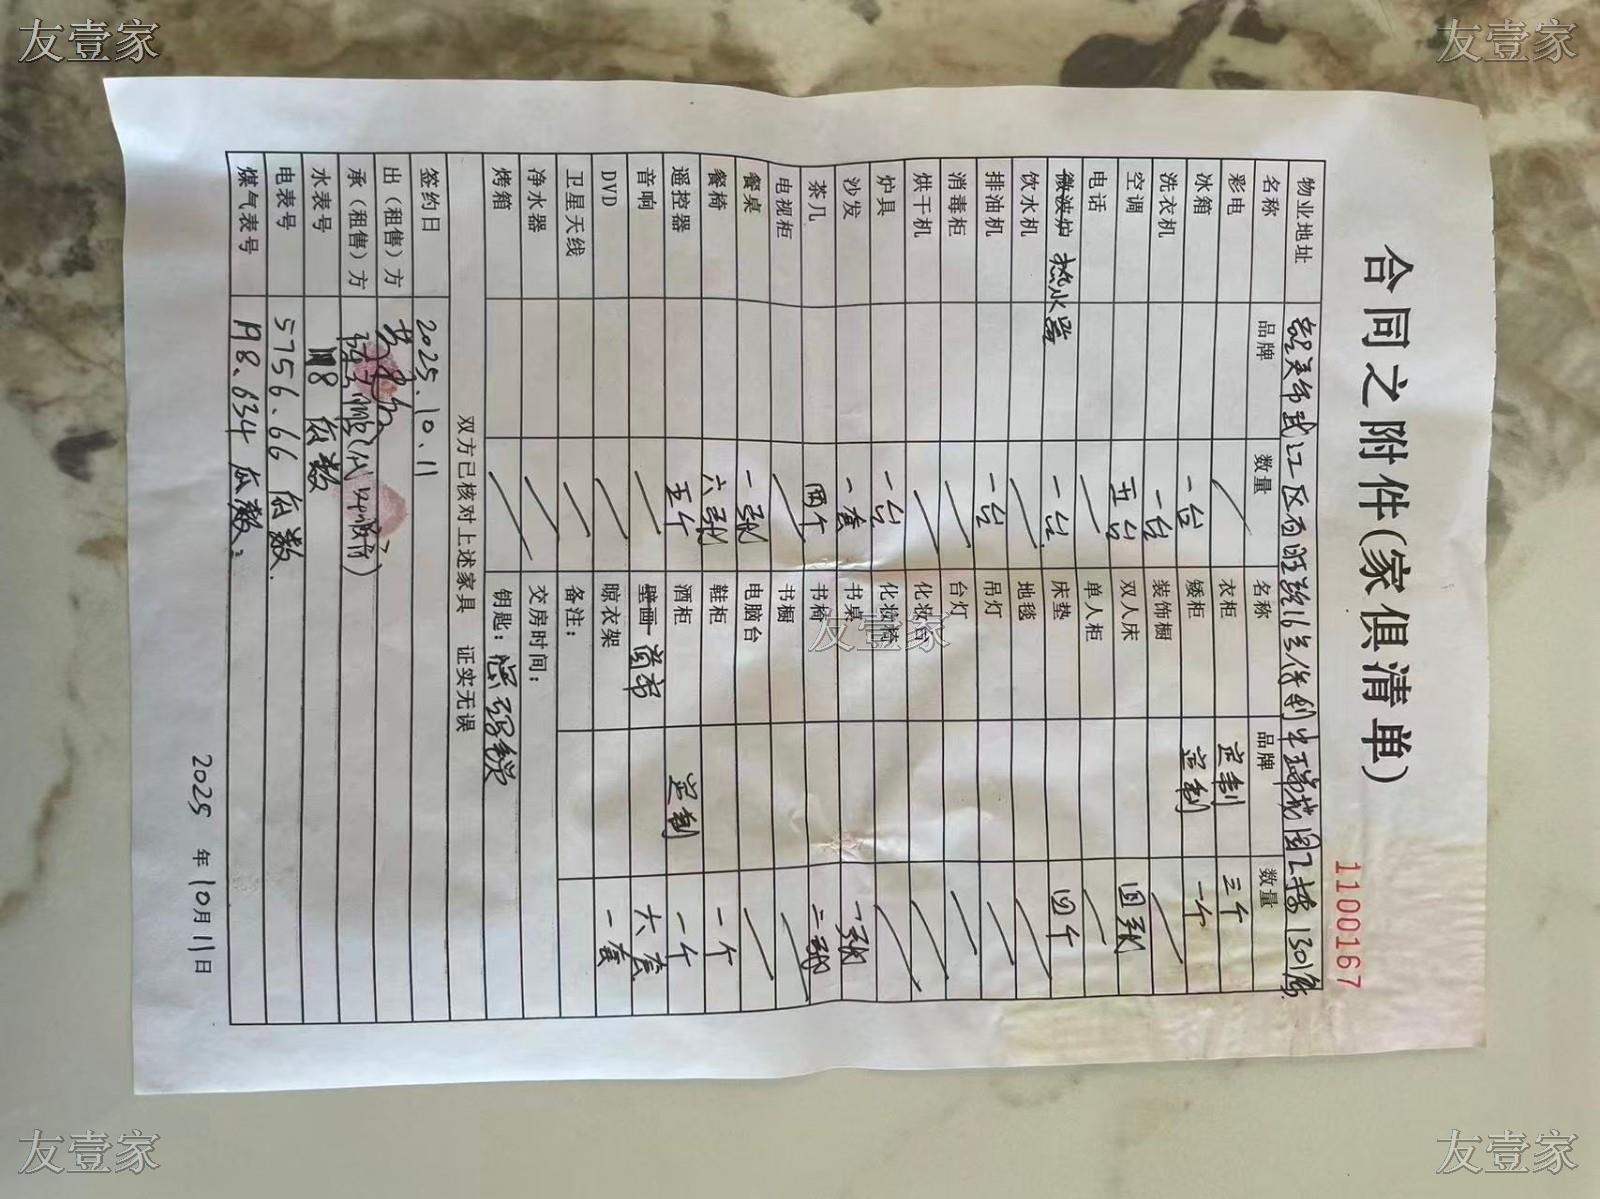 友壹家
友壹家
合同之附件(家俱清单)
1100167
物业地址 韶关市武江区百旺路16号保利中瑞花园乙栋1301房
名称 品牌 数量 名称 品牌 数量
彩电 / 衣柜 定制 三个
冰箱 一台 矮柜 定制 一个
洗衣机 一台 装饰橱 /
空调 五台 双人床 四张
电话 / 单人柜 /
微波炉 热水器 一台 床垫 四个
饮水机 / 地毯 /
排油机 一台 吊灯 /
消毒柜 / 台灯 /
烘干机 / 化妆台 /
炉具 一台 化妆椅 /
沙发 一套 书桌 一张
茶几 两个 书椅 二张
电视柜 / 书橱 /
餐桌 一张 电脑台 /
餐椅 六张 鞋柜 一个
遥控器 五个 酒柜 定制 一个
音响 / 壁画 窗帘 六套
DVD / 晾衣架 一套
卫星天线 / 备注:
净水器 / 交房时间:
烤箱 / 钥匙: 密码锁
双方已核对上述家具 证实无误
签约日 2025.10.11
出(租售)方
承(租售)方
水表号 8 底数
电表号 5756.66 底数.
煤气表号 198.634 底数:
2025 年 10 月 11 日
友壹家
友壹家
友壹家